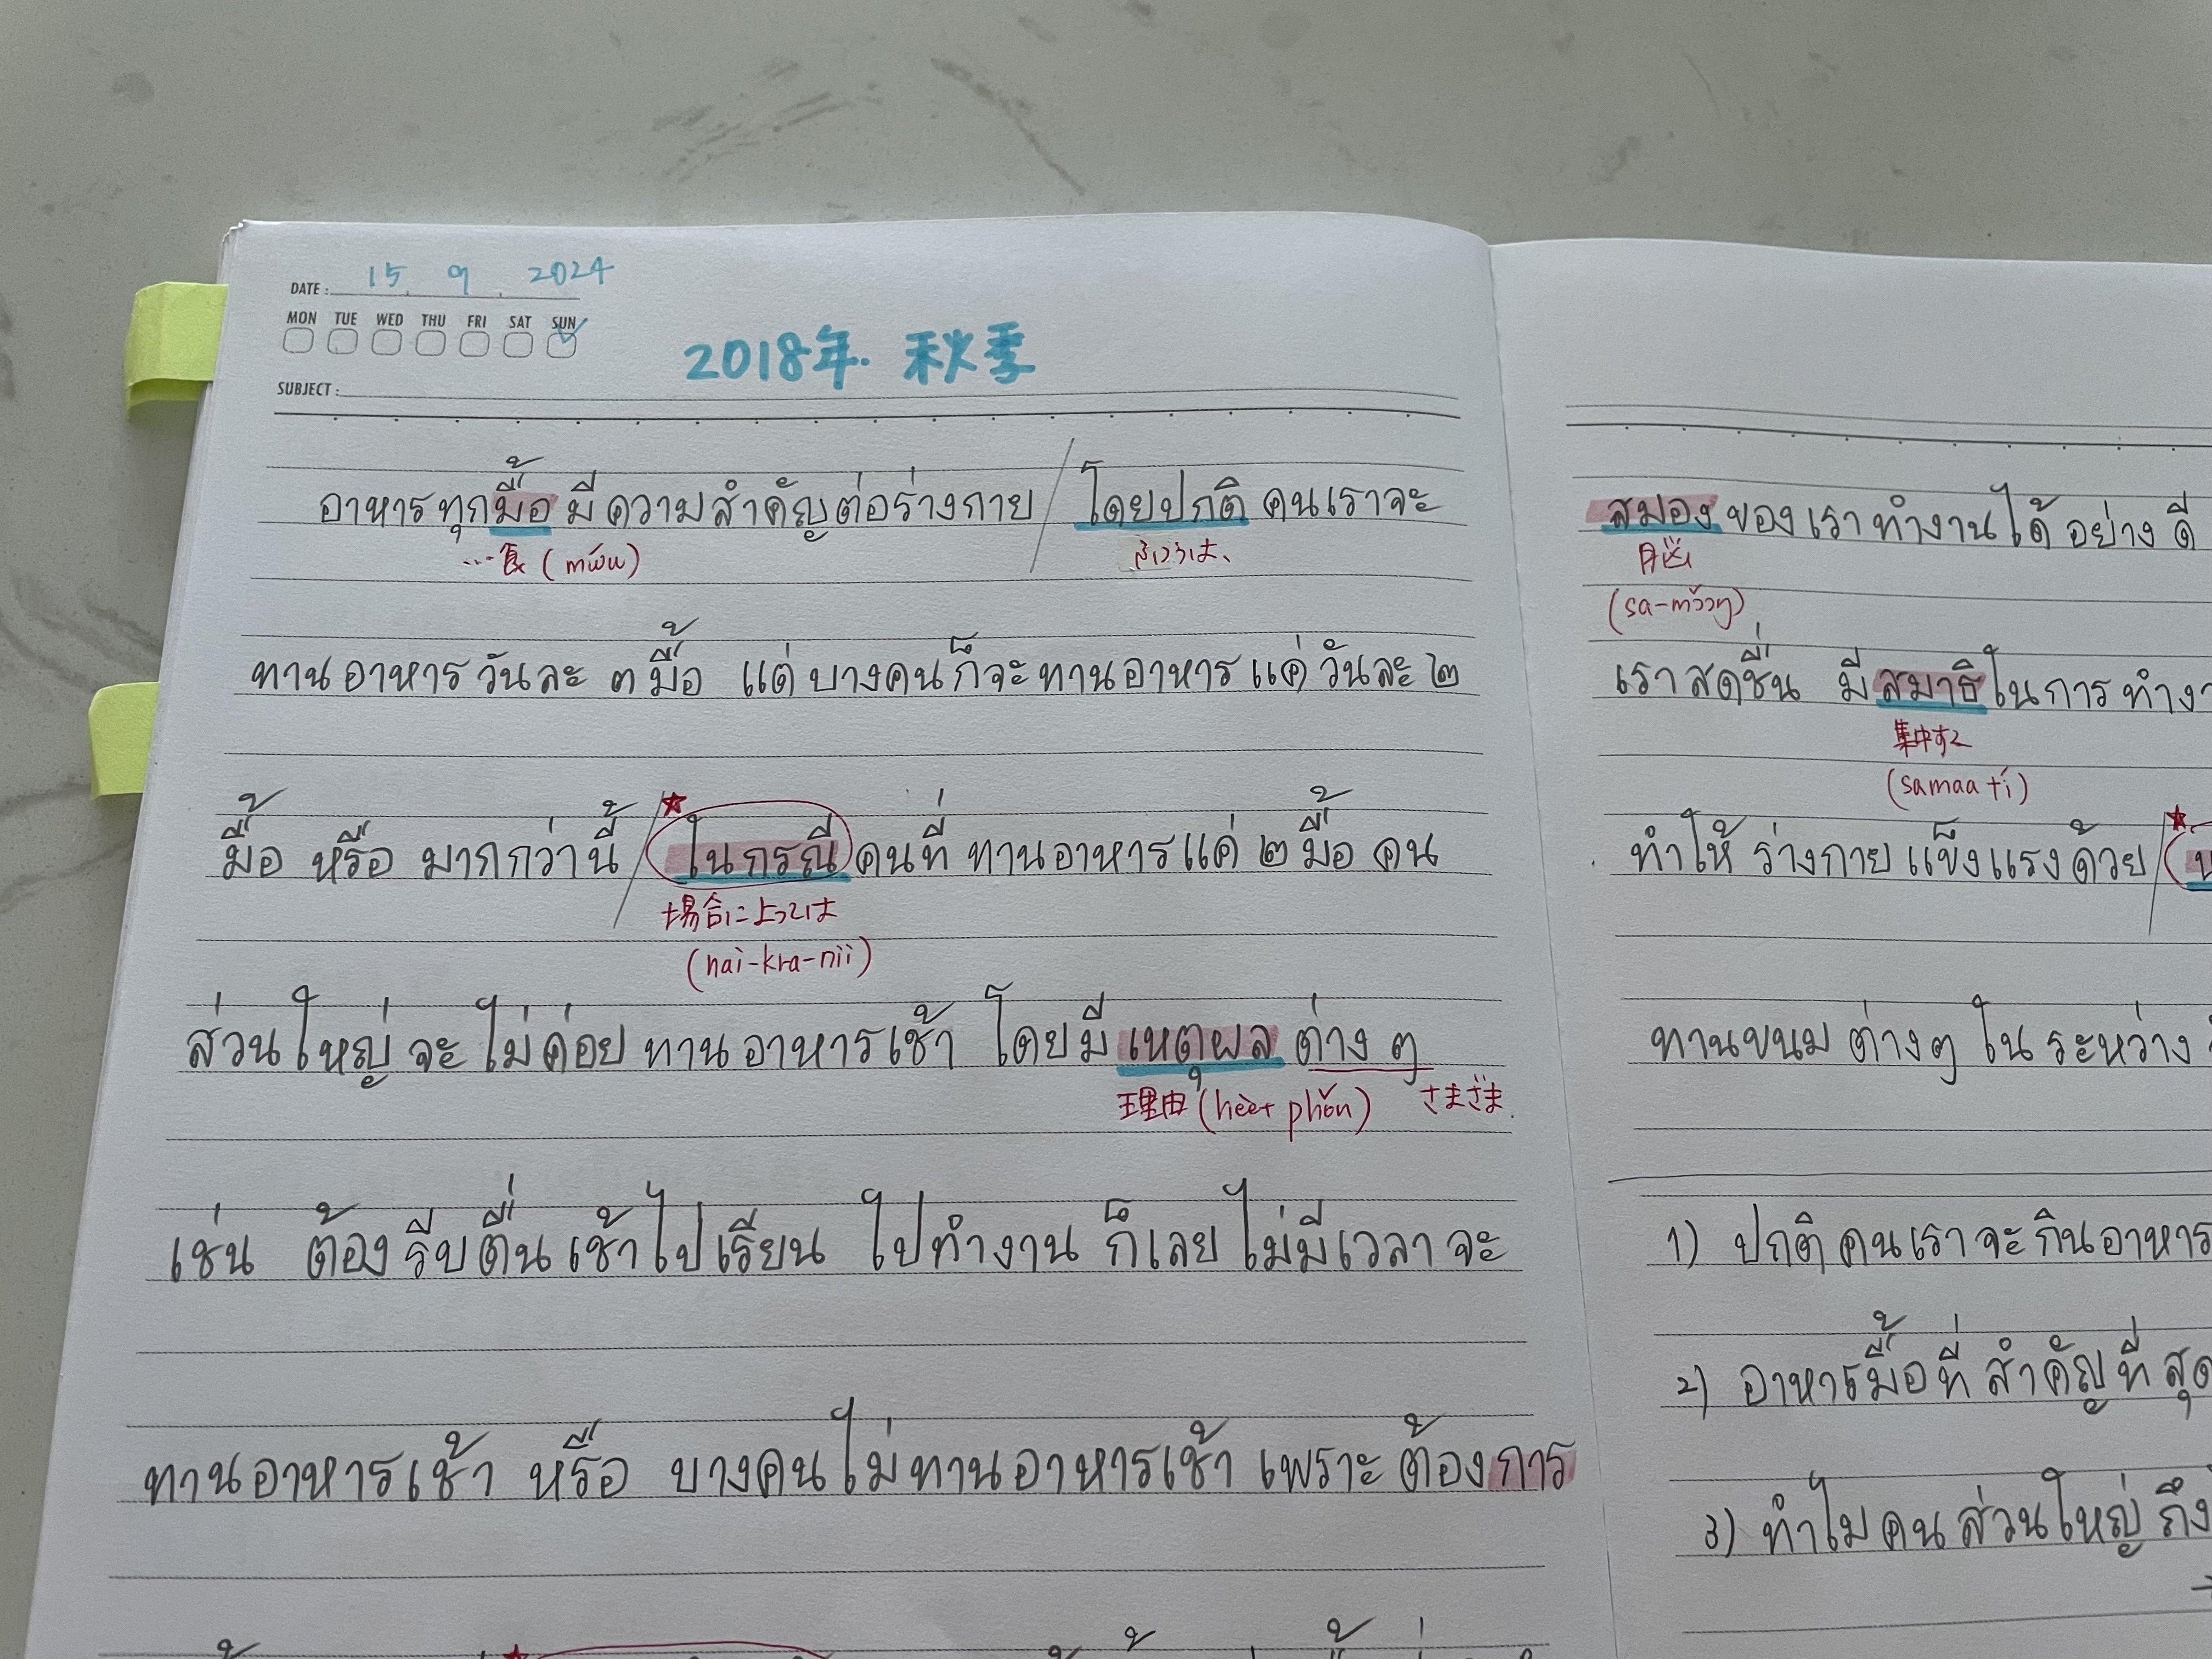 DATE : 15. 9. 2024
MON TUE WED THU FRI SAT SUN
2018年. 秋季
SUBJECT :
อาหารทุกมื้อ มีความสำคัญต่อร่างกาย / โดยปกติ คนเราจะ
…食 (mʉ́ʉ) ふつうは、
ทานอาหาร วันละ ๓ มื้อ แต่ บางคนก็จะทานอาหาร แค่ วันละ ๒
มื้อ หรือ มากกว่านี้ / ★ ในกรณี คนที่ ทานอาหารแค่ ๒ มื้อ คน
場合によっては
(nai-kra-nii)
ส่วนใหญ่ จะ ไม่ค่อย ทานอาหารเช้า โดยมี เหตุผล ต่าง ๆ
理由 (hèet phǒn) さまざま.
เช่น ต้องรีบตื่นเช้าไปเรียน ไปทำงาน ก็เลย ไม่มีเวลา จะ
ทานอาหารเช้า หรือ บางคนไม่ทานอาหารเช้า เพราะ ต้องการ
สมอง ของเรา ทำงานได้ อย่าง ดี
脳
(sa-mɔ̌ɔŋ)
เรา สดชื่น มี สมาธิ ในการ ทำง
集中する
(samaa tí)
ทำให้ ร่างกาย แข็งแรง ด้วย / ★
ทานขนม ต่างๆ ใน ระหว่าง
1) ปกติ คนเราจะ กินอาหาร
2) อาหารมื้อที่ สำคัญที่ สุด
3) ทำไม คน ส่วนใหญ่ ถึง